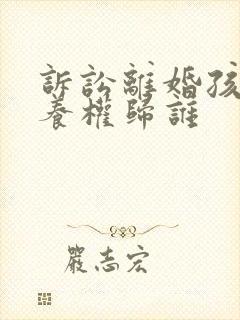 訴訟離婚孩
養權歸誰
嚴志宏